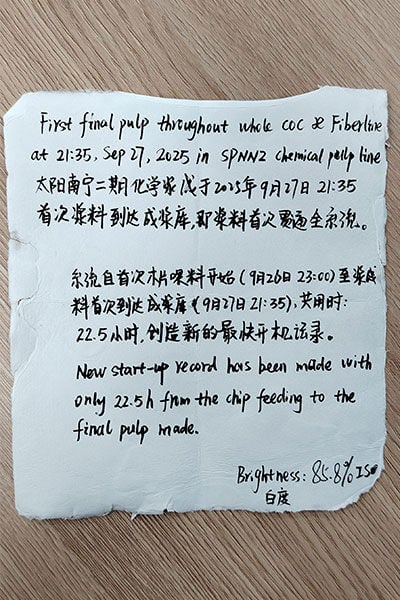 First final pulp throughout whole COC & Fiberline
at 21:35, Sep 27, 2025 in SPNN2 chemical pulp line
太阳南宁二期化学浆线于2025年9月27日 21:35
首次浆料到达成浆库,即浆料首次贯通全系统。
系统自首次木片喂料开始(9月26日 23:00)至浆
料首次到达成浆库(9月27日 21:35),共用时:
22.5小时,创造新的最快开机记录。
New start-up record has been made with
only 22.5h from the chip feeding to the
final pulp made.
Brightness: 85.8% ISO
白度